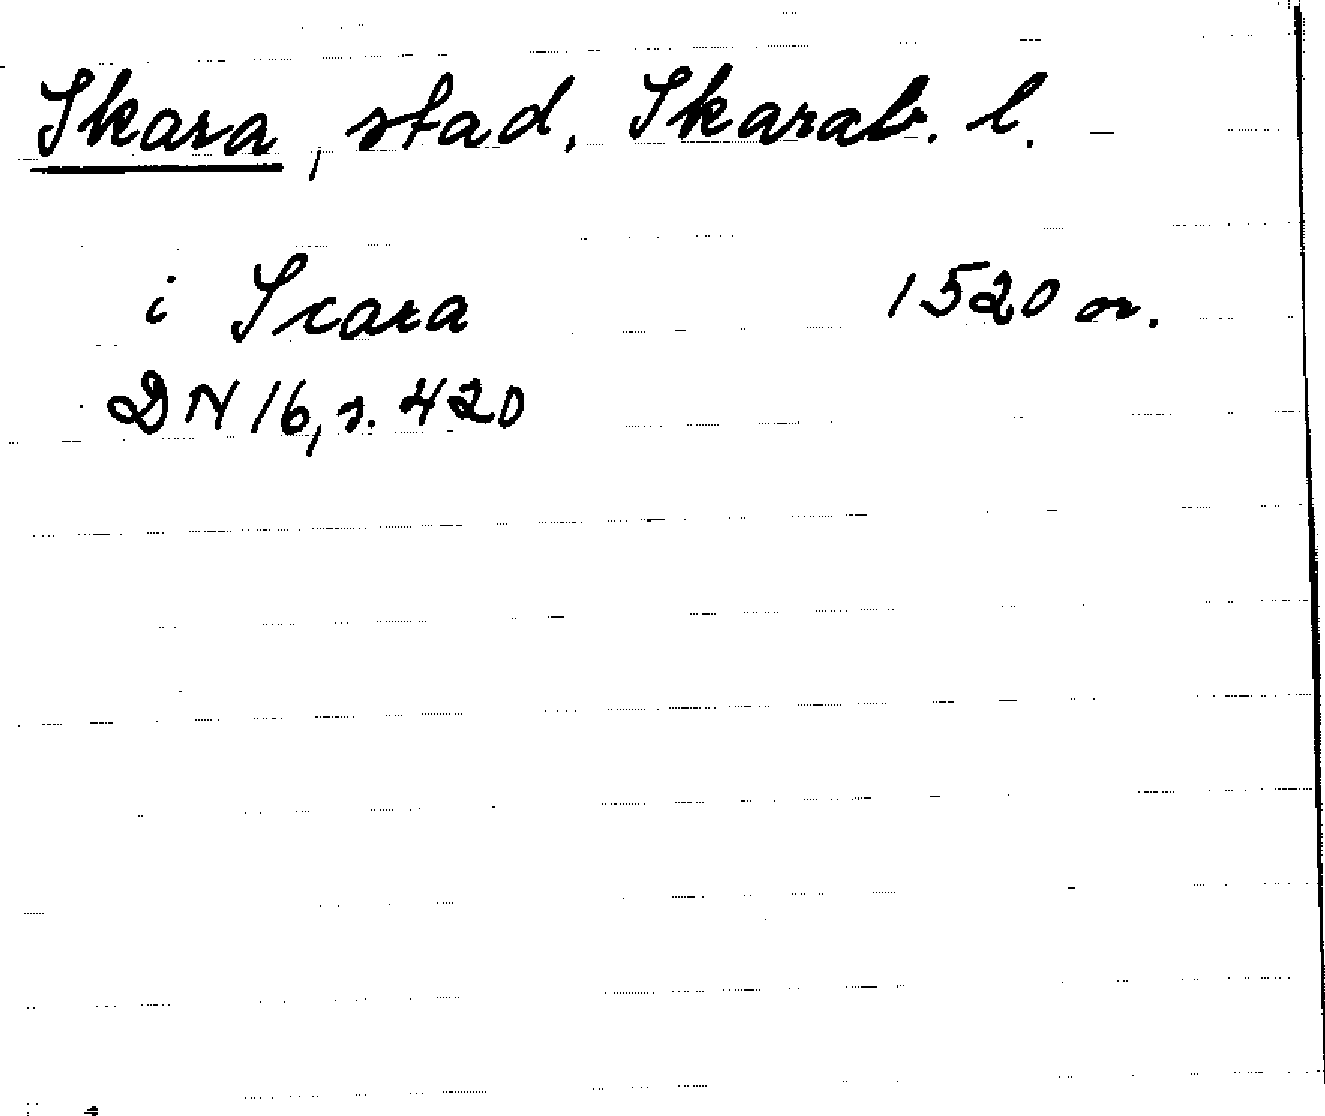 Skara, stad, Skarab. l.
i Scara 1520 or.
DN 16, s. 420